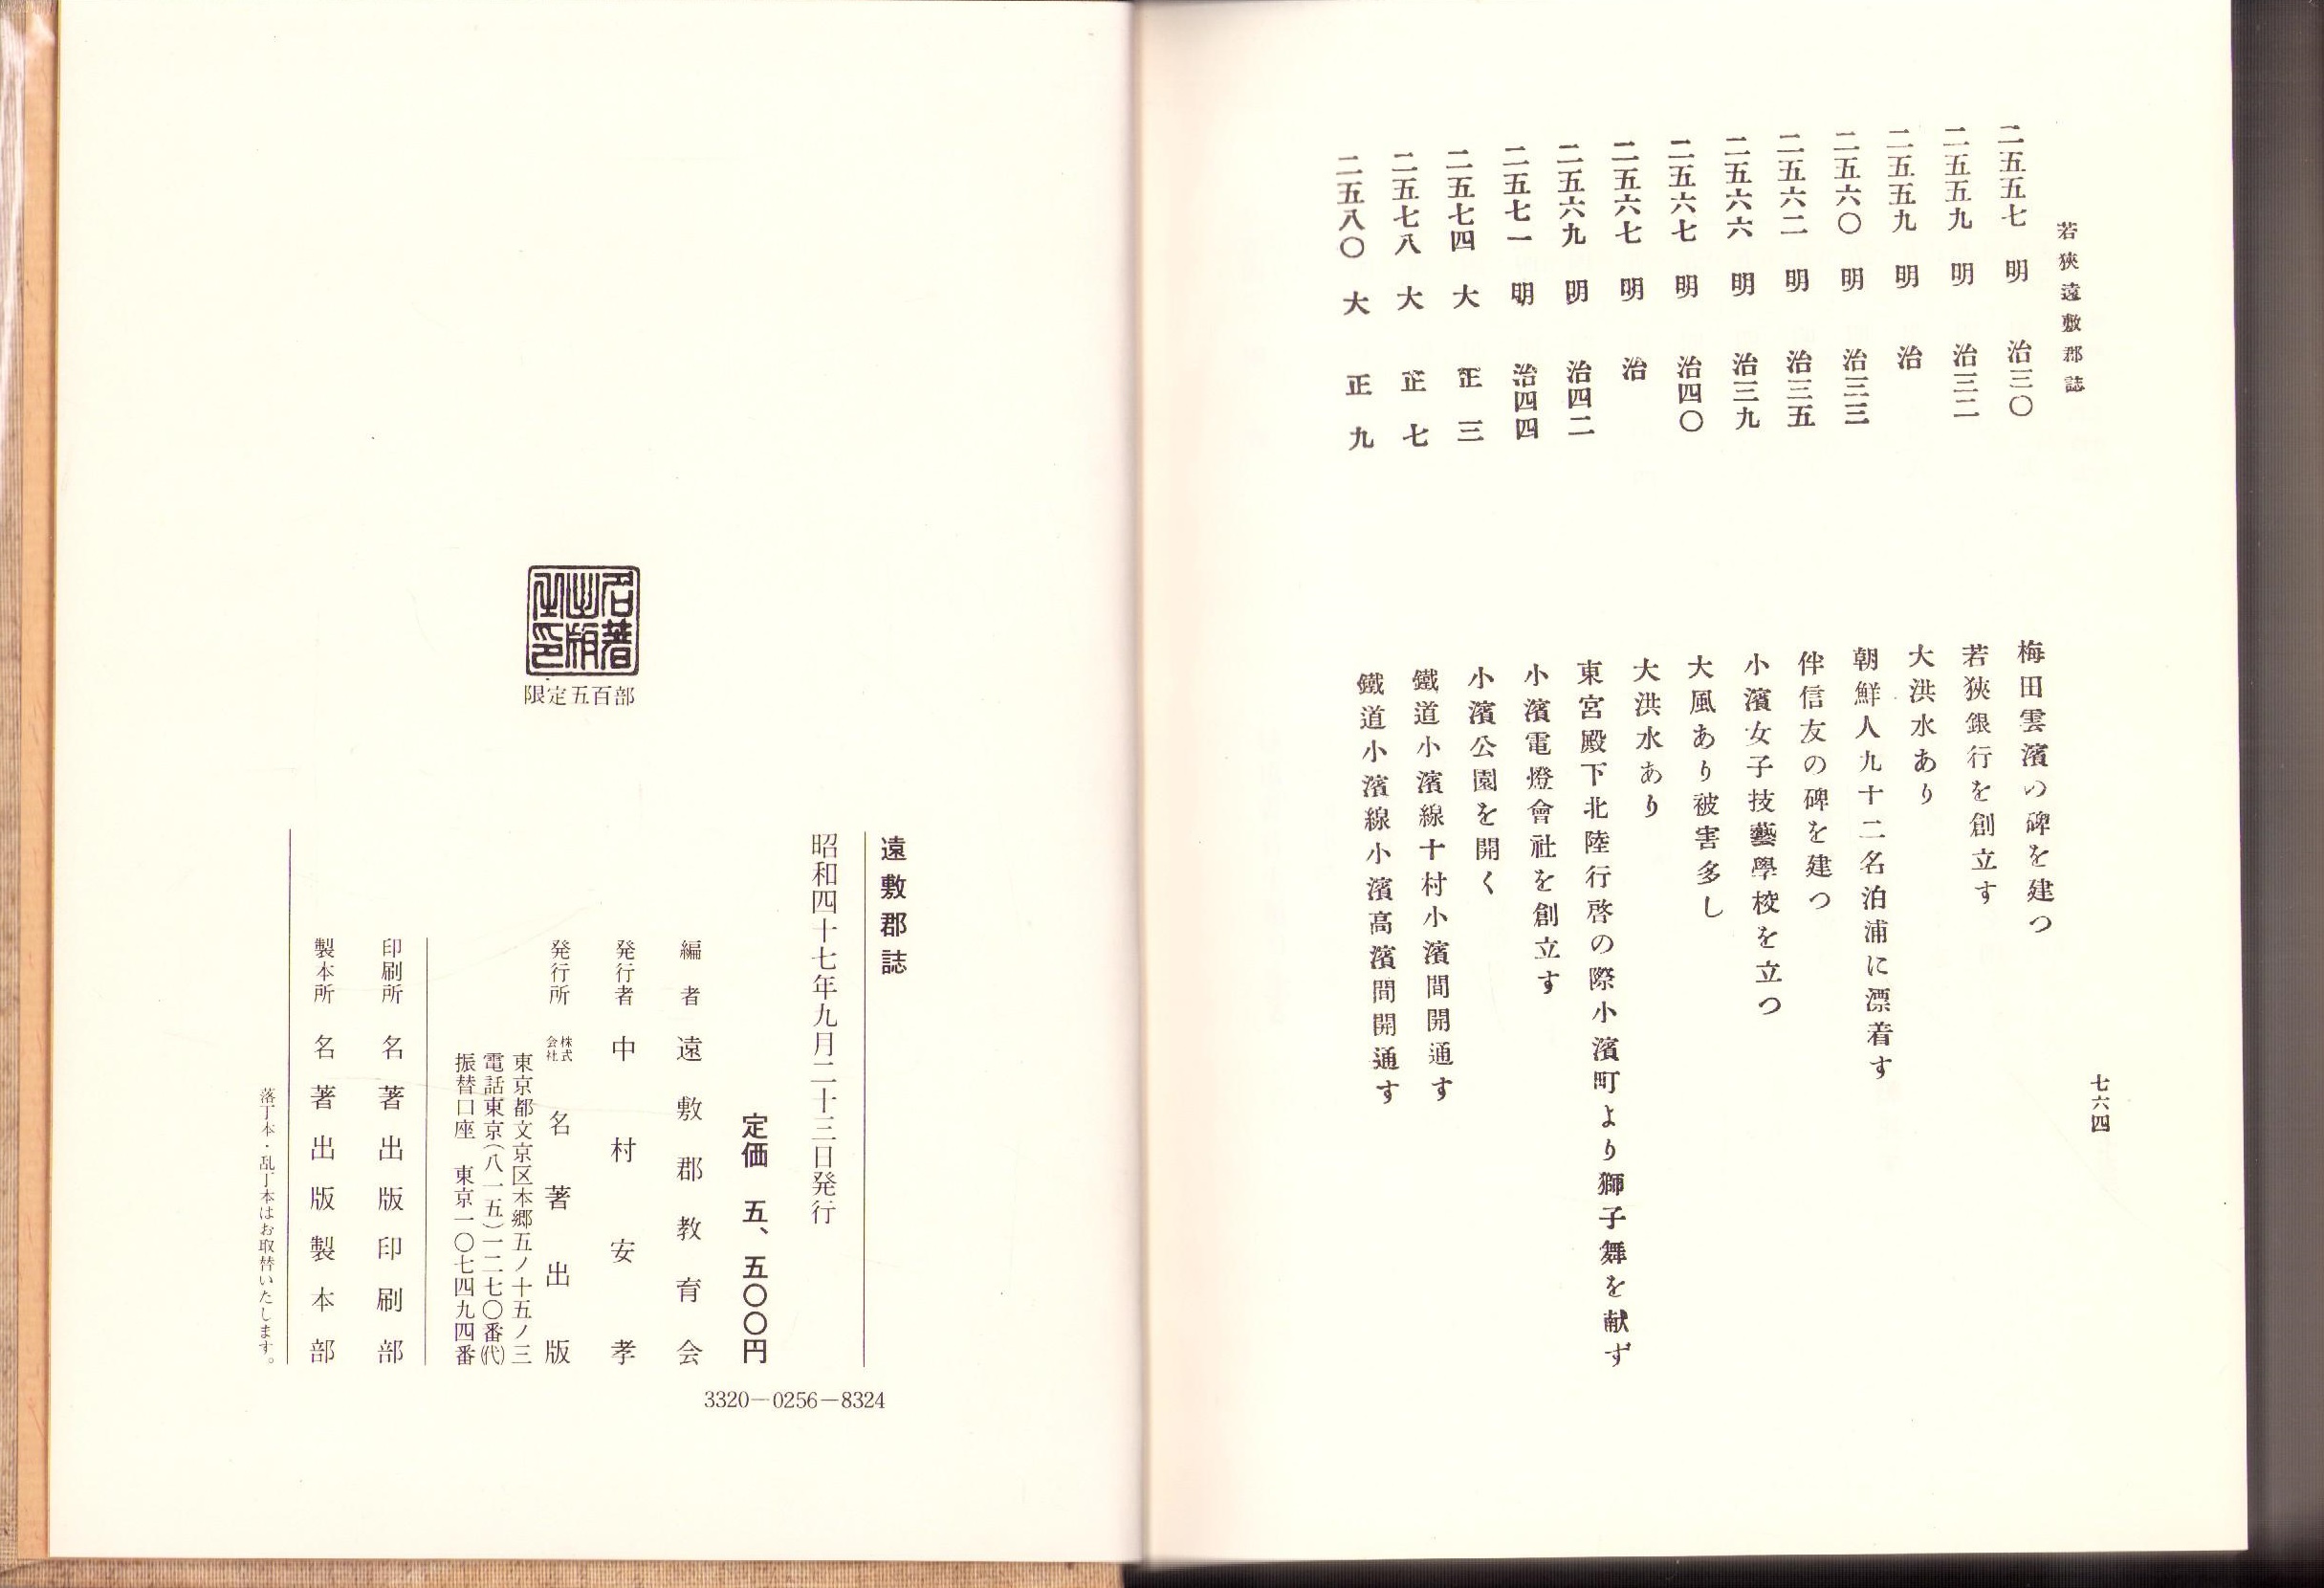 若狹遠敷郡誌
七六四
二五五七 明 治三〇 梅田雲濱の碑を建つ
二五五九 明 治三二 若狹銀行を創立す
二五五九 明 治 大洪水あり
二五六〇 明 治三三 朝鮮人九十二名泊浦に漂着す
二五六二 明 治三五 伴信友の碑を建つ
二五六六 明 治三九 小濱女子技藝學校を立つ
二五六七 明 治四〇 大風あり被害多し
二五六七 明 治 大洪水あり
二五六九 明 治四二 東宮殿下北陸行啓の際小濱町より獅子舞を献ず
二五七一 明 治四四 小濱電燈會社を創立す
二五七四 大 正 三 小濱公園を開く
二五七八 大 正 七 鐵道小濱線十村小濱間開通す
二五八〇 大 正 九 鐵道小濱線小濱高濱間開通す
名著出版之印
限定五百部
遠敷郡誌
昭和四十七年九月二十三日発行
定価 五、五〇〇円
編者 遠敷郡教育会
発行者 中村安孝
発行所 株式会社 名著出版
東京都文京区本郷五ノ十五ノ三
電話東京(八一五)一二七〇番(代)
振替口座 東京一〇七四九四番
印刷所 名著出版印刷部
製本所 名著出版製本部
落丁本・乱丁本はお取替いたします。
3320-0256-8324